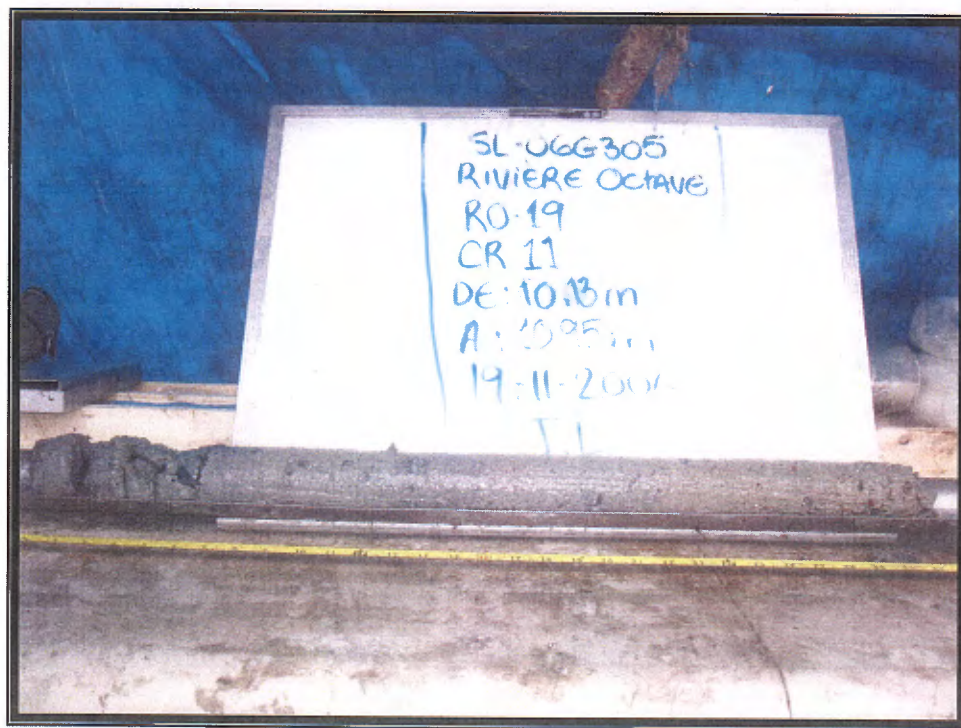 SL-06G305
RIVIERE OCTAVE
RO-19
CR 11
DE: 10.13 m
A: 10.95 m
19-11-